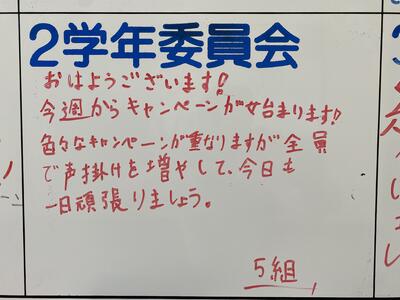 2学年委員会
おはようございます!
今週からキャンペーンが始まります!
色々なキャンペーンが重なりますが全員
で声掛けを増やして、今日も
一日頑張りましょう。
5組